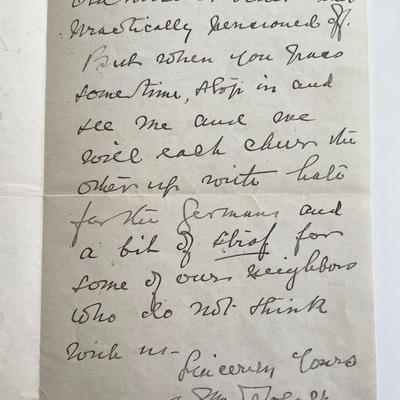 practically pensioned off.
But when you pass
sometime, stop in and
see me and we
will each cheer the
other up with hate
for the Germans and
a bit of strafe for
some of our neighbors
who do not think
with us -
Sincerely Yours